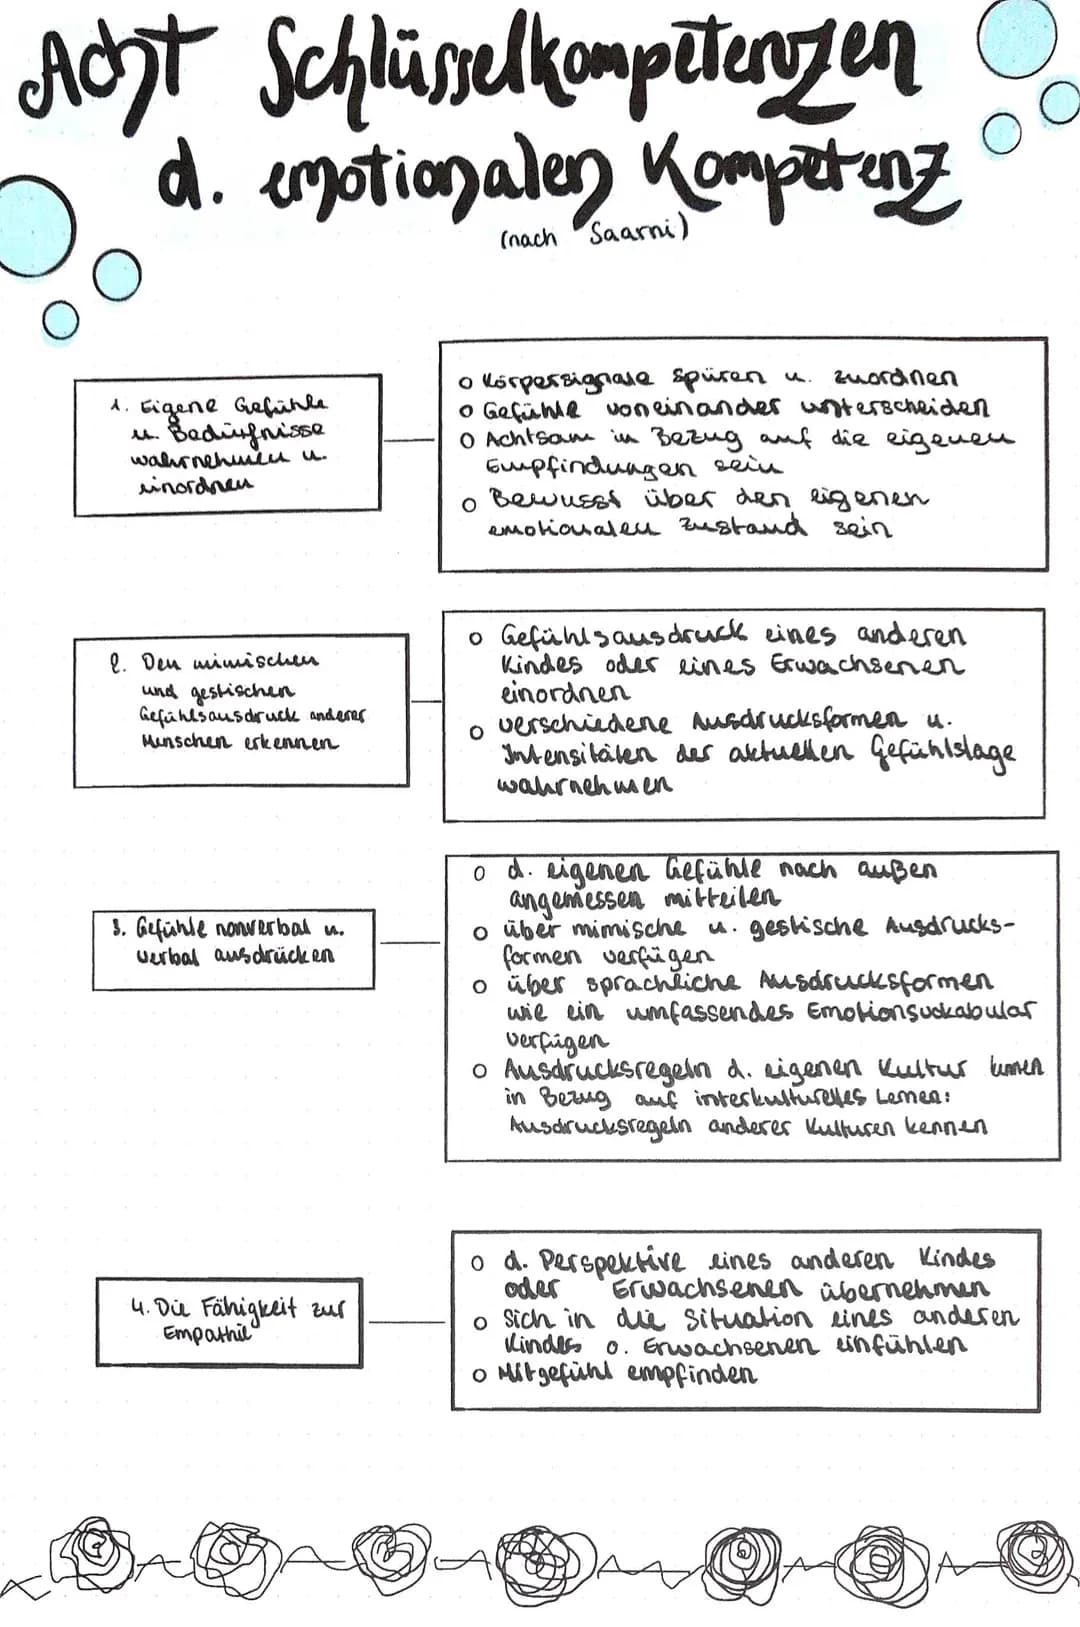 Acht Schlüsselkompetenzen
d. emotionalen Kompetenz
(nach Saarni)
1. Eigene Gefühle
u. Bedürfnisse
wahrnehmen u.
einordnen
o Körpersignale spüren u. zuordnen
o Gefühle voneinander unterscheiden
o Achtsam in Bezug auf die eigenen
Empfindungen sein
o Bewusst über den eigenen
emotionalen Zustand sein
2. Den mimischen
und gestischen
Gefühlsausdruck anderer
Menschen erkennen
o Gefühlsausdruck eines anderen
Kindes oder eines Erwachsenen
einordnen
o verschiedene Ausdrucksformen u.
Intensitäten der aktuellen Gefühlslage
wahrnehmen
3. Gefühle nonverbal u.
verbal ausdrücken
o d. eigenen Gefühle nach außen
angemessen mitteilen
o über mimische u. gestische Ausdrucks-
formen verfügen
o über sprachliche Ausdrucksformen
wie ein umfassendes Emotionsvokabular
verfügen
o Ausdrucksregeln d. eigenen Kultur kennen
in Bezug auf interkulturelles Lernen:
Ausdrucksregeln anderer Kulturen kennen
4. Die Fähigkeit zur
Empathie
o d. Perspektive eines anderen Kindes
oder Erwachsenen übernehmen
o Sich in die Situation eines anderen
Kindes o. Erwachsenen einfühlen
o Mitgefühl empfinden